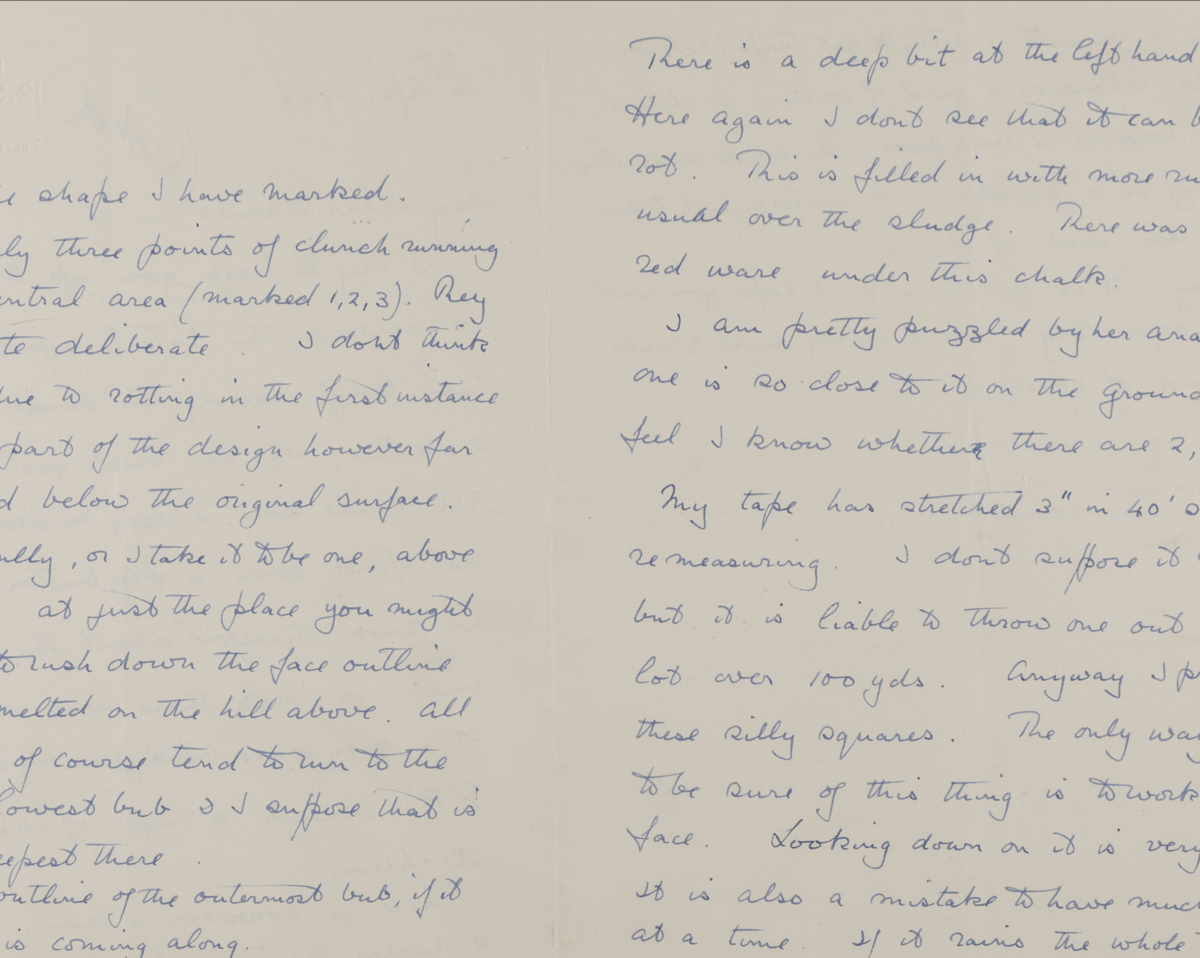 shape I have marked.
three points of clunch running
area (marked 1, 2, 3). They
deliberate. I dont think
to rotting in the first instance
part of the design however far
below the original surface.
, or I take it to be one, above
at just the place you might
to rush down the face outline
melted on the hill above. All
of course tend to run to the
lowest bub & I suppose that is
there.
outline of the outermost bub, if it
is coming along.
There is a deep bit at the left hand
Here again I dont see that it can
rot. This is filled in with more
usual over the sludge. There was
red ware under this chalk.
I am pretty puzzled by her
one is so close to it on the
feel I know whether there are 2,
My tape has stretched 3" in 40'
remeasuring. I dont suppose it
but it is liable to throw one out
lot over 100 yds. Anyway I
these silly squares. The only
to be sure of this thing is to work
face. Looking down on it is very
It is also a mistake to have much
at a time. If it rains the whole